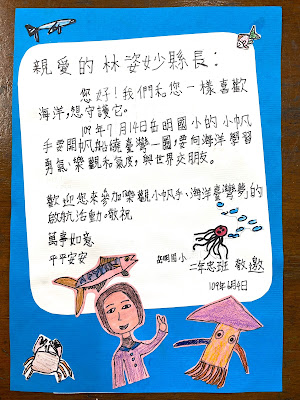 親愛的林姿妙縣長:
您好!我們和您一樣喜歡
海洋,想守護它。
109年7月14日岳明國小的小帆
手要開帆船繞臺灣一圈,要向海洋學習
勇氣、樂觀和氣度,與世界交朋友。
歡迎您來參加「樂觀小帆手、海洋臺灣夢」的
啟航活動。敬祝
萬事如意
平平安安
岳明國小 二年忠班 敬邀
109年6月4日